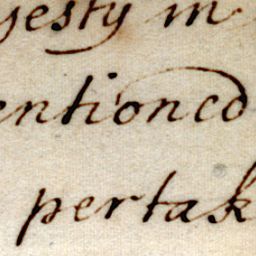 jesty in
entioned
pertak